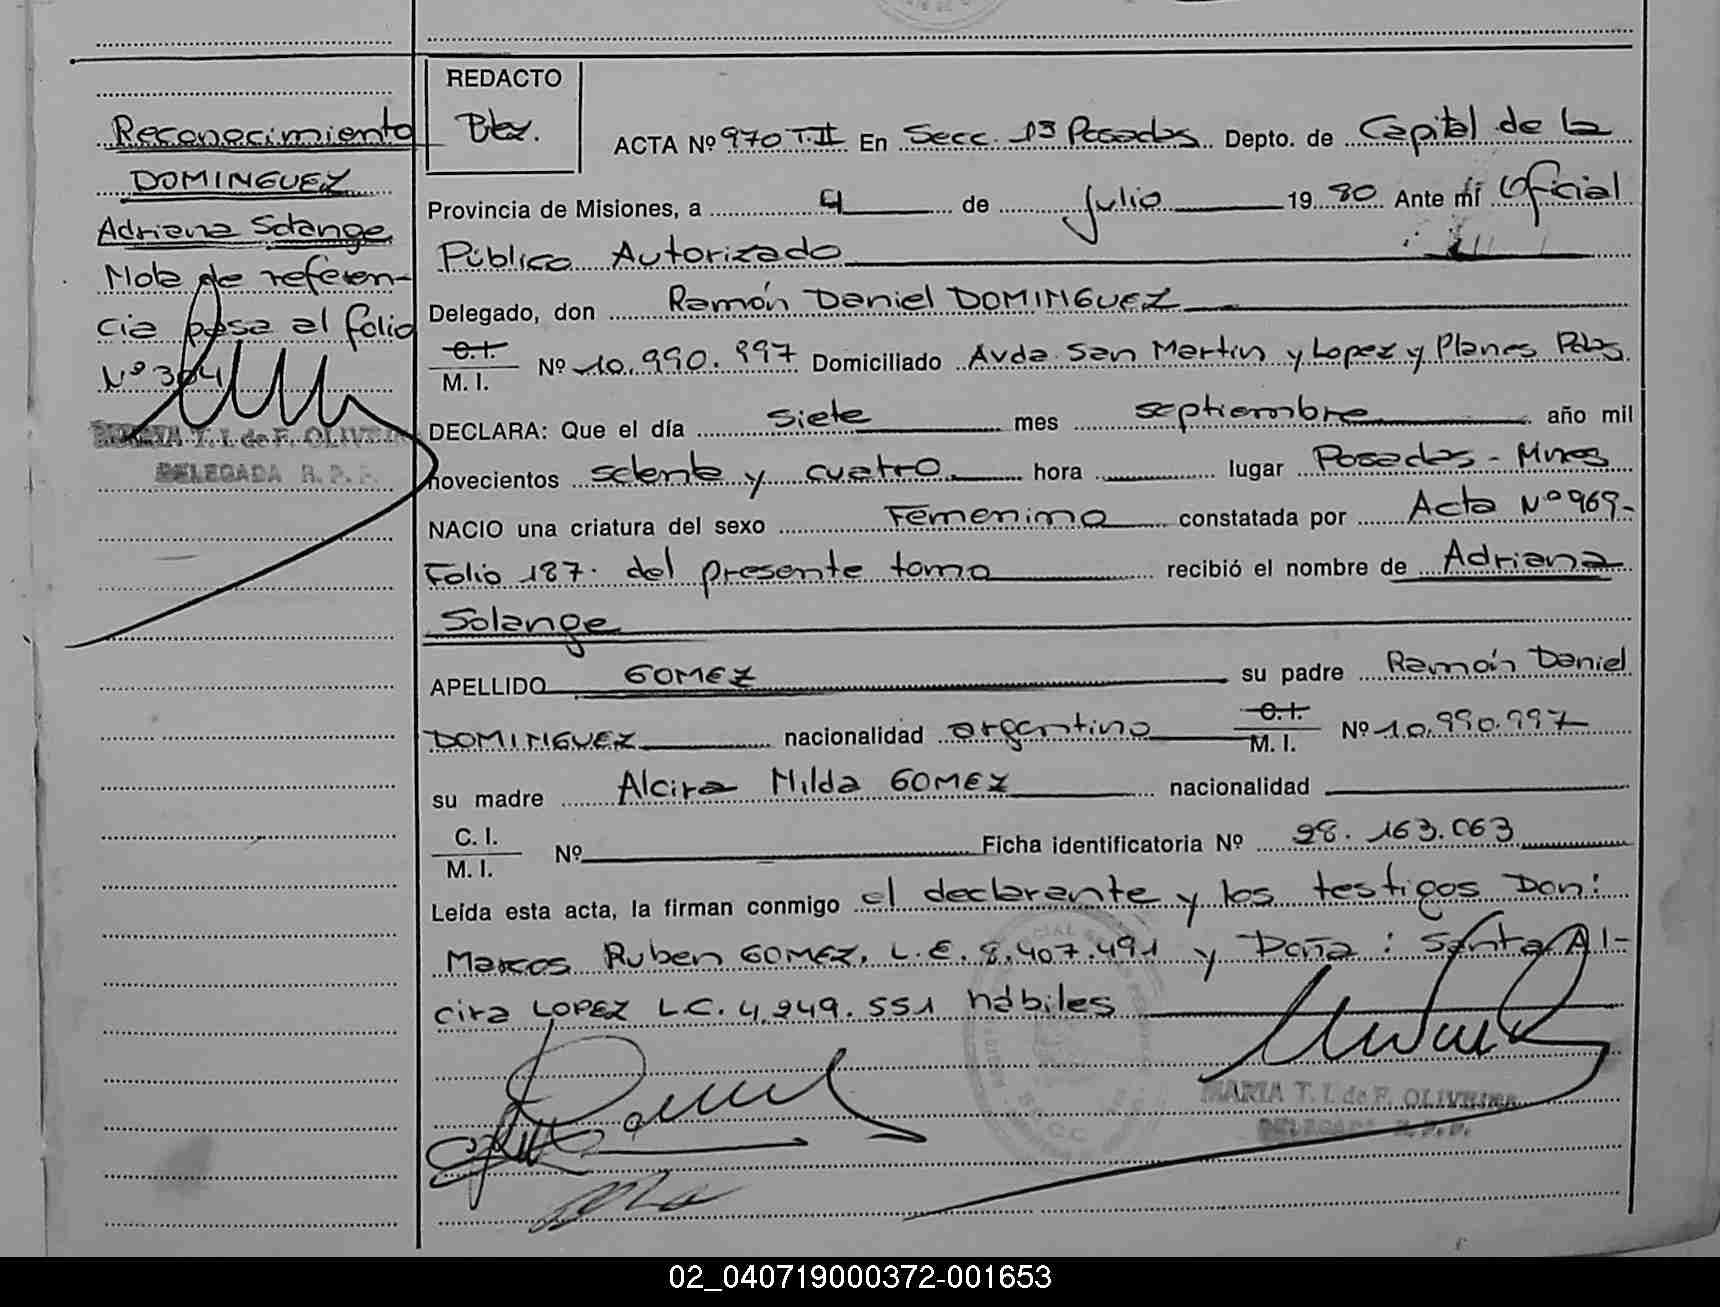 REDACTO
Reconocimiento
DOMINGUEZ
Adriana Solange
Nota de referen-
cia pasa al folio
Nº 304
MARIA T. I. de F. OLIVEIRA
DELEGADA R. P. P.
ACTA Nº 970 T.II En Secc. 1ª Posadas Depto. de Capital de la
Provincia de Misiones, a 4 de Julio 1980 Ante mí Oficial
Público Autorizado
Delegado, don Ramón Daniel DOMINGUEZ
C.I.
M. I. Nº 10.990.997 Domiciliado Avda San Martin y Lopez y Planes Pdas
DECLARA: Que el día siete mes septiembre año mil
novecientos setenta y cuatro hora lugar Posadas - Mnes
NACIO una criatura del sexo Femenino constatada por Acta Nº 969-
Folio 187. del presente tomo recibió el nombre de Adriana
Solange
APELLIDO GOMEZ su padre Ramón Daniel
DOMINGUEZ nacionalidad argentino C.I.
M. I. Nº 10.990.997
su madre Alcira Nilda GOMEZ nacionalidad
C. I.
M. I. Nº Ficha identificatoria Nº 28.163.063
Leída esta acta, la firman conmigo el declarante y los testigos Don:
Marcos Ruben GOMEZ, L.E. 8.407.491 y Doña: Santa Al-
cira LOPEZ L.C. 4.949.551 hábiles
MARIA T. I. de F. OLIVEIRA
DELEGADA R. P. P.
02_040719000372-001653